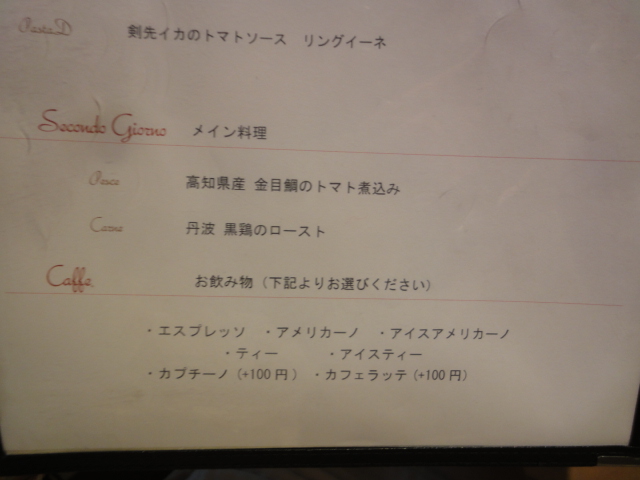 Pasta D 剣先イカのトマトソース リングイーネ
Secondo Giorno メイン料理
Pesce 高知県産 金目鯛のトマト煮込み
Carne 丹波 黒鶏のロースト
Caffe. お飲み物（下記よりお選びください）
・エスプレッソ ・アメリカーノ ・アイスアメリカーノ
・ティー ・アイスティー
・カプチーノ（+100円） ・カフェラッテ（+100円）